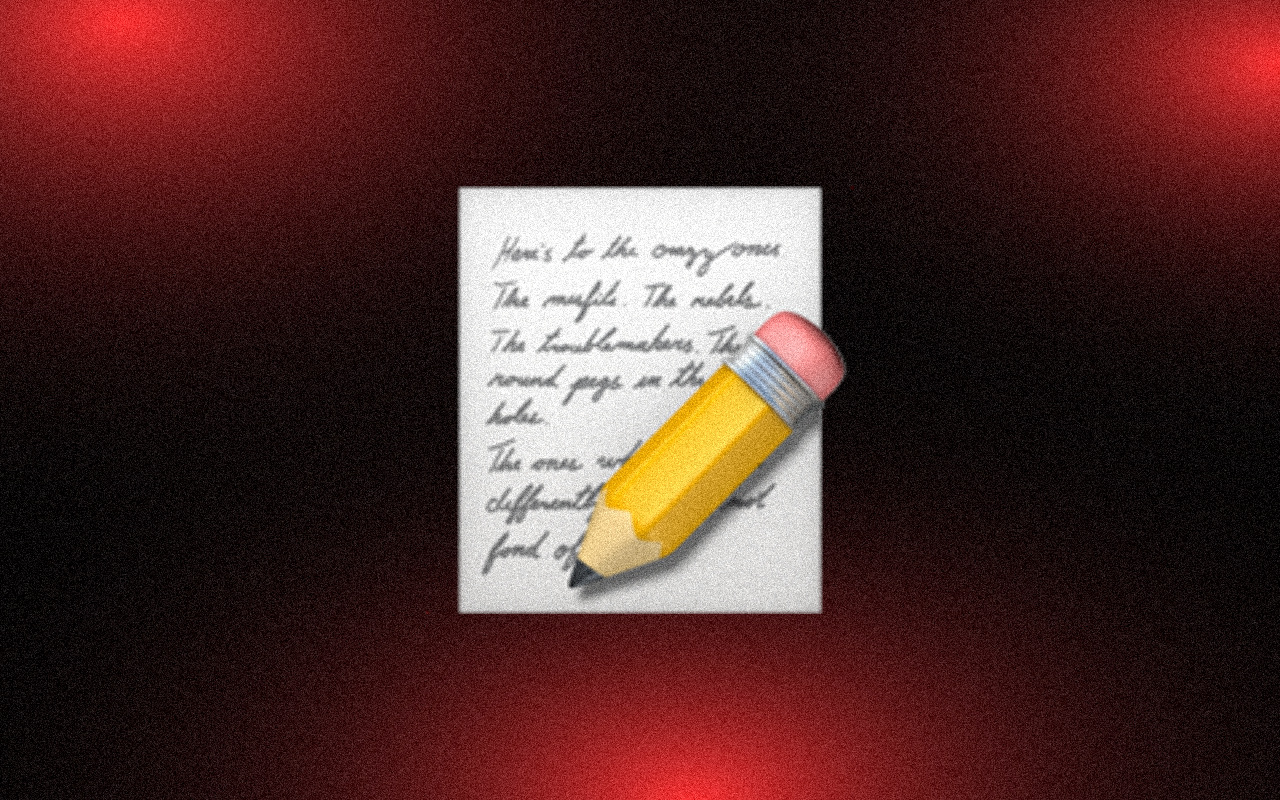 Here's to the crazy ones
The misfits. The rebels.
The troublemakers. The
round pegs in the
holes.
The ones
differently
fond of